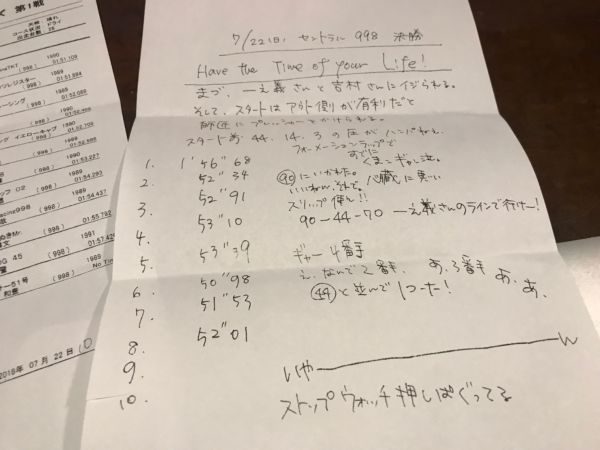 第1戦
天候 晴れ
コース状況 ドライ
出走台数 28
1990
(998) 01:51.109
1989
(998) 01:51.894
(998) 01:52.089
イエローキャブ 1990
(998)
(998)
01:53.227
(998) 01:54.280
(998) 01:54.437
(998) 01:55.792
1991
(998) 01:57.429
45
1989
(998) No Tim
2018年 07月 22日(
7/22(日) セントラル 998 決勝
Have the Time of your Life!
まづ、一え義さんと吉村さんにイジられる。
そして、スタートはアウト側が有利だと
師匠にプレッシャーとかけられる。
スタート前 44. 14. 3 の圧がハンパねぇ
フォーメーションラップで
すでに
1. 1'46"68 くまこギャン泣。
2. 52"34 90にいかれた。 心臓に悪い
いいねん、それで。
3. 52"91 スリップ使ん!!
90-44-70 一え義さんのラインで行けー!
4. 53"10
5. 53"39 ギャー 4番手
え、なんで2番手、 あ、3番手 あ、 あ、
6. 50"98 44と並んで1つーた!
7. 51"53
8. 52"01
9. いやー ん
10. ストップウォッチ押しぱぐってる